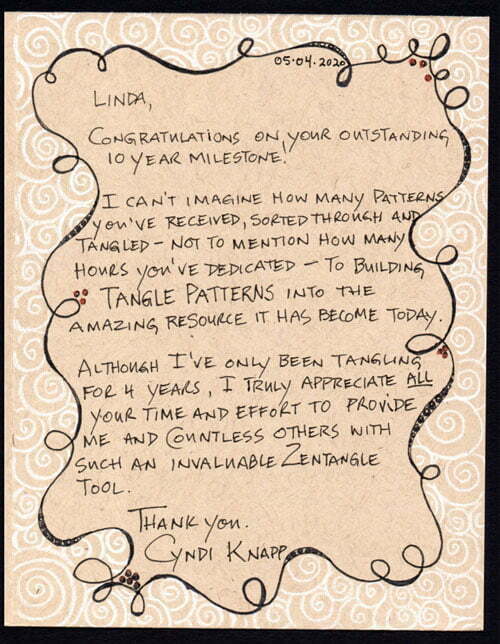 05·04·2020
LINDA,
CONGRATULATIONS ON YOUR OUTSTANDING
10 YEAR MILESTONE.
I CAN'T IMAGINE HOW MANY PATTERNS
YOU'VE RECEIVED, SORTED THROUGH AND
TANGLED – NOT TO MENTION HOW MANY
HOURS YOU'VE DEDICATED – TO BUILDING
TANGLE PATTERNS INTO THE
AMAZING RESOURCE IT HAS BECOME TODAY.
ALTHOUGH I'VE ONLY BEEN TANGLING
FOR 4 YEARS, I TRULY APPRECIATE ALL
YOUR TIME AND EFFORT TO PROVIDE
ME AND COUNTLESS OTHERS WITH
SUCH AN INVALUABLE ZENTANGLE
TOOL.
THANK YOU.
CYNDI KNAPP